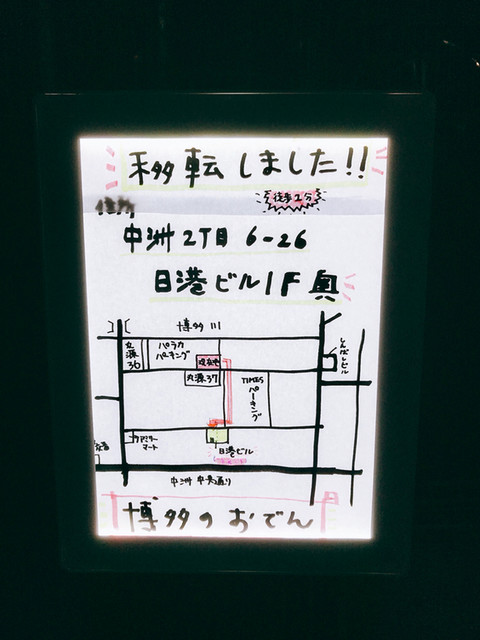 移転しました!!
徒歩2分
住所
中洲2丁目6-26
日港ビル1F奥
博多川
丸源36
パラカパーキング
現在地
丸源37
TIMESパーキング
とんぼビル
ファミリーマート
日港ビル
中洲中央通り
博多のおでん